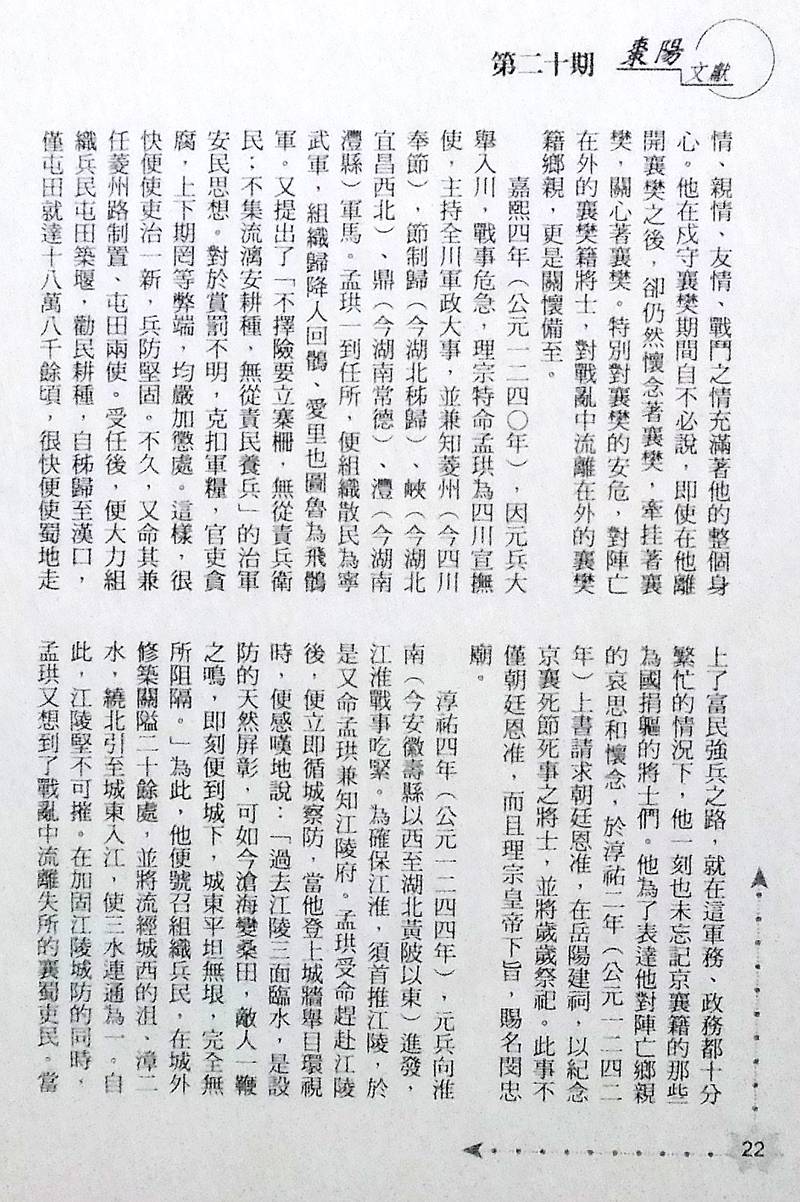 棗陽
文獻
第二十期
情、親情、友情、戰鬥之情充滿著他的整個身
心。他在戍守襄樊期間自不必說，即使在他離
開襄樊之後，卻仍然懷念著襄樊，牽挂著襄
樊，關心著襄樊。特別對襄樊的安危，對陣亡
在外的襄樊籍將士，對戰亂中流離在外的襄樊
籍鄉親，更是關懷備至。
嘉熙四年（公元一二四〇年），因元兵大
舉入川，戰事危急，理宗特命孟珙為四川宣撫
使，主持全川軍政大事，並兼知菱州（今四川
奉節），節制歸（今湖北秭歸）、峽（今湖北
宜昌西北）、鼎（今湖南常德）、澧（今湖南
澧縣）軍馬。孟珙一到任所，便組織散民為寧
武軍，組織歸降人回鶻、愛里也圖魯為飛鶻
軍。又提出了「不擇險要立寨柵，無從責兵衛
民；不集流漓安耕種，無從責民養兵」的治軍
安民思想。對於賞罰不明，克扣軍糧，官吏貪
腐，上下期罔等弊端，均嚴加懲處。這樣，很
快便使吏治一新，兵防堅固。不久，又命其兼
任菱州路制置、屯田兩使。受任後，便大力組
織兵民屯田築堰，勸民耕種，自秭歸至漢口，
僅屯田就達十八萬八千餘頃，很快便使蜀地走
上了富民強兵之路，就在這軍務、政務都十分
繁忙的情況下，他一刻也未忘記京襄籍的那些
為國捐軀的將士們。他為了表達他對陣亡鄉親
的哀思和懷念，於淳祐二年（公元一二四二
年）上書請求朝廷恩准，在岳陽建祠，以紀念
京襄死節死事之將士，並將歲歲祭祀。此事不
僅朝廷恩准，而且理宗皇帝下旨，賜名閔忠
廟。
淳祐四年（公元一二四四年），元兵向淮
南（今安徽壽縣以西至湖北黃陂以東）進發，
江淮戰事吃緊。為確保江淮，須首推江陵，於
是又命孟珙兼知江陵府。孟珙受命趕赴江陵
後，便立即循城察防，當他登上城牆舉目環視
時，便感嘆地說：「過去江陵三面臨水，是設
防的天然屏彰，可如今滄海變桑田，敵人一鞭
之鳴，即刻便到城下，城東平坦無垠，完全無
所阻隔。」為此，他便號召組織兵民，在城外
修築關隘二十餘處，並將流經城西的沮、漳二
水，繞北引至城東入江，使三水連通為一。自
此，江陵堅不可摧。在加固江陵城防的同時，
孟珙又想到了戰亂中流離失所的襄蜀吏民。當
22